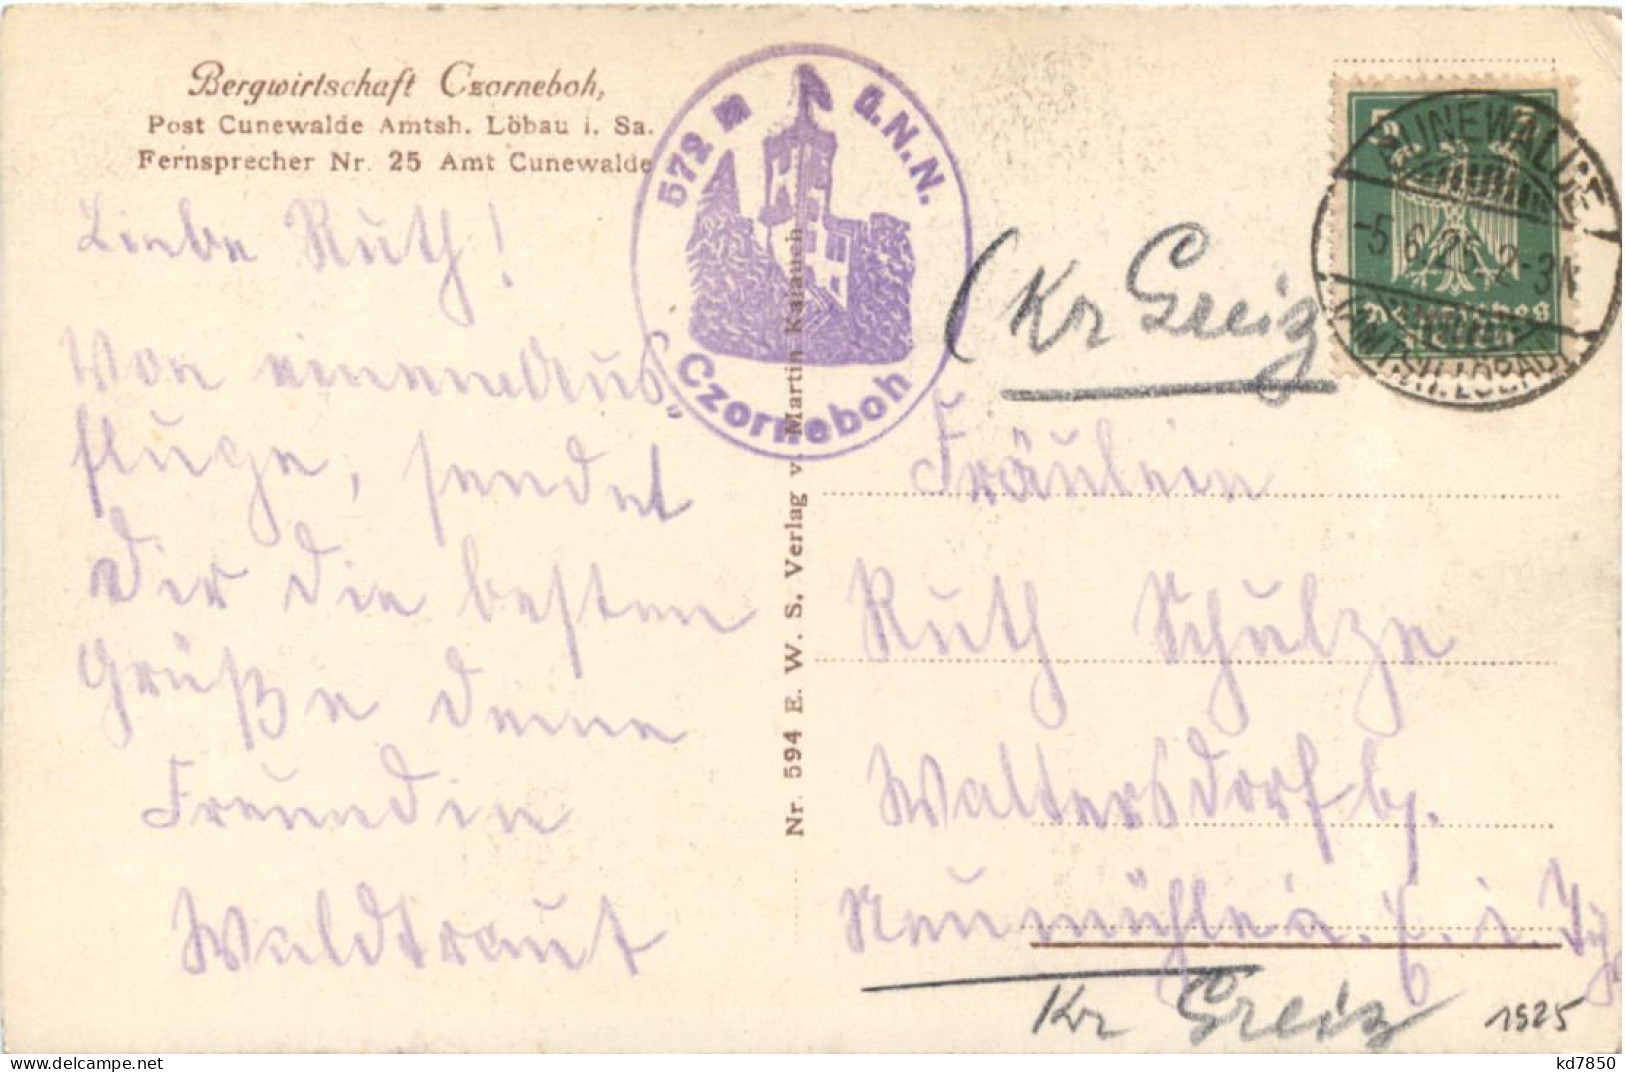 Bergwirtschaft Czorneboh,
Post Cunewalde Amtsh. Löbau i. Sa.
Fernsprecher Nr. 25 Amt Cunewalde
572 m ü.N.N.
Czorneboh
CUNEWALDE
-5.6.25.2-3N
(AMTSH. LÖBAU)
5 5
Deutsches
Reich
Liebe Ruth!
Von einem Aus-
fluge, sendet
Dir die besten
Grüße deine
Freundin
Waldtraut
Nr. 594 E. W. S. Verlag v. Martin Kalauch
(Kr Greiz
Fräulein
Ruth Schulze
Waltersdorf b.
Neumühle a. E. i. Th
Kr Greiz
1925
kd7850